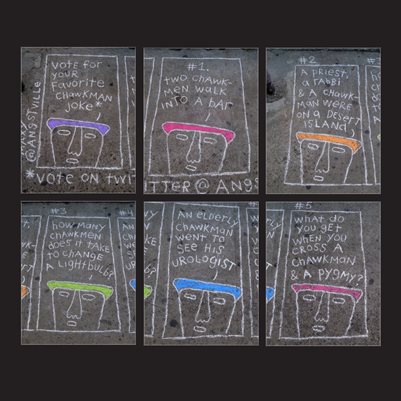 VOTE FOR
YOUR
FAVORITE
CHAWKMAN
JOKE*
@ANGSTVILLE
*VOTE ON TWI
#1.
TWO CHAWK-
MEN WALK
INTO A BAR
ITTER@ANGS
#2
A PRIEST,
A RABBI
& A CHAWK-
MAN WERE
ON A DESERT
ISLAND
#3
HOW MANY
CHAWKMEN
DOES IT TAKE
TO CHANGE
A LIGHTBULB?
#4
AN ELDERLY
CHAWKMAN
WENT TO
SEE HIS
UROLOGIST
#5
WHAT DO
YOU GET
WHEN YOU
CROSS A
CHAWKMAN
& A PYGMY?